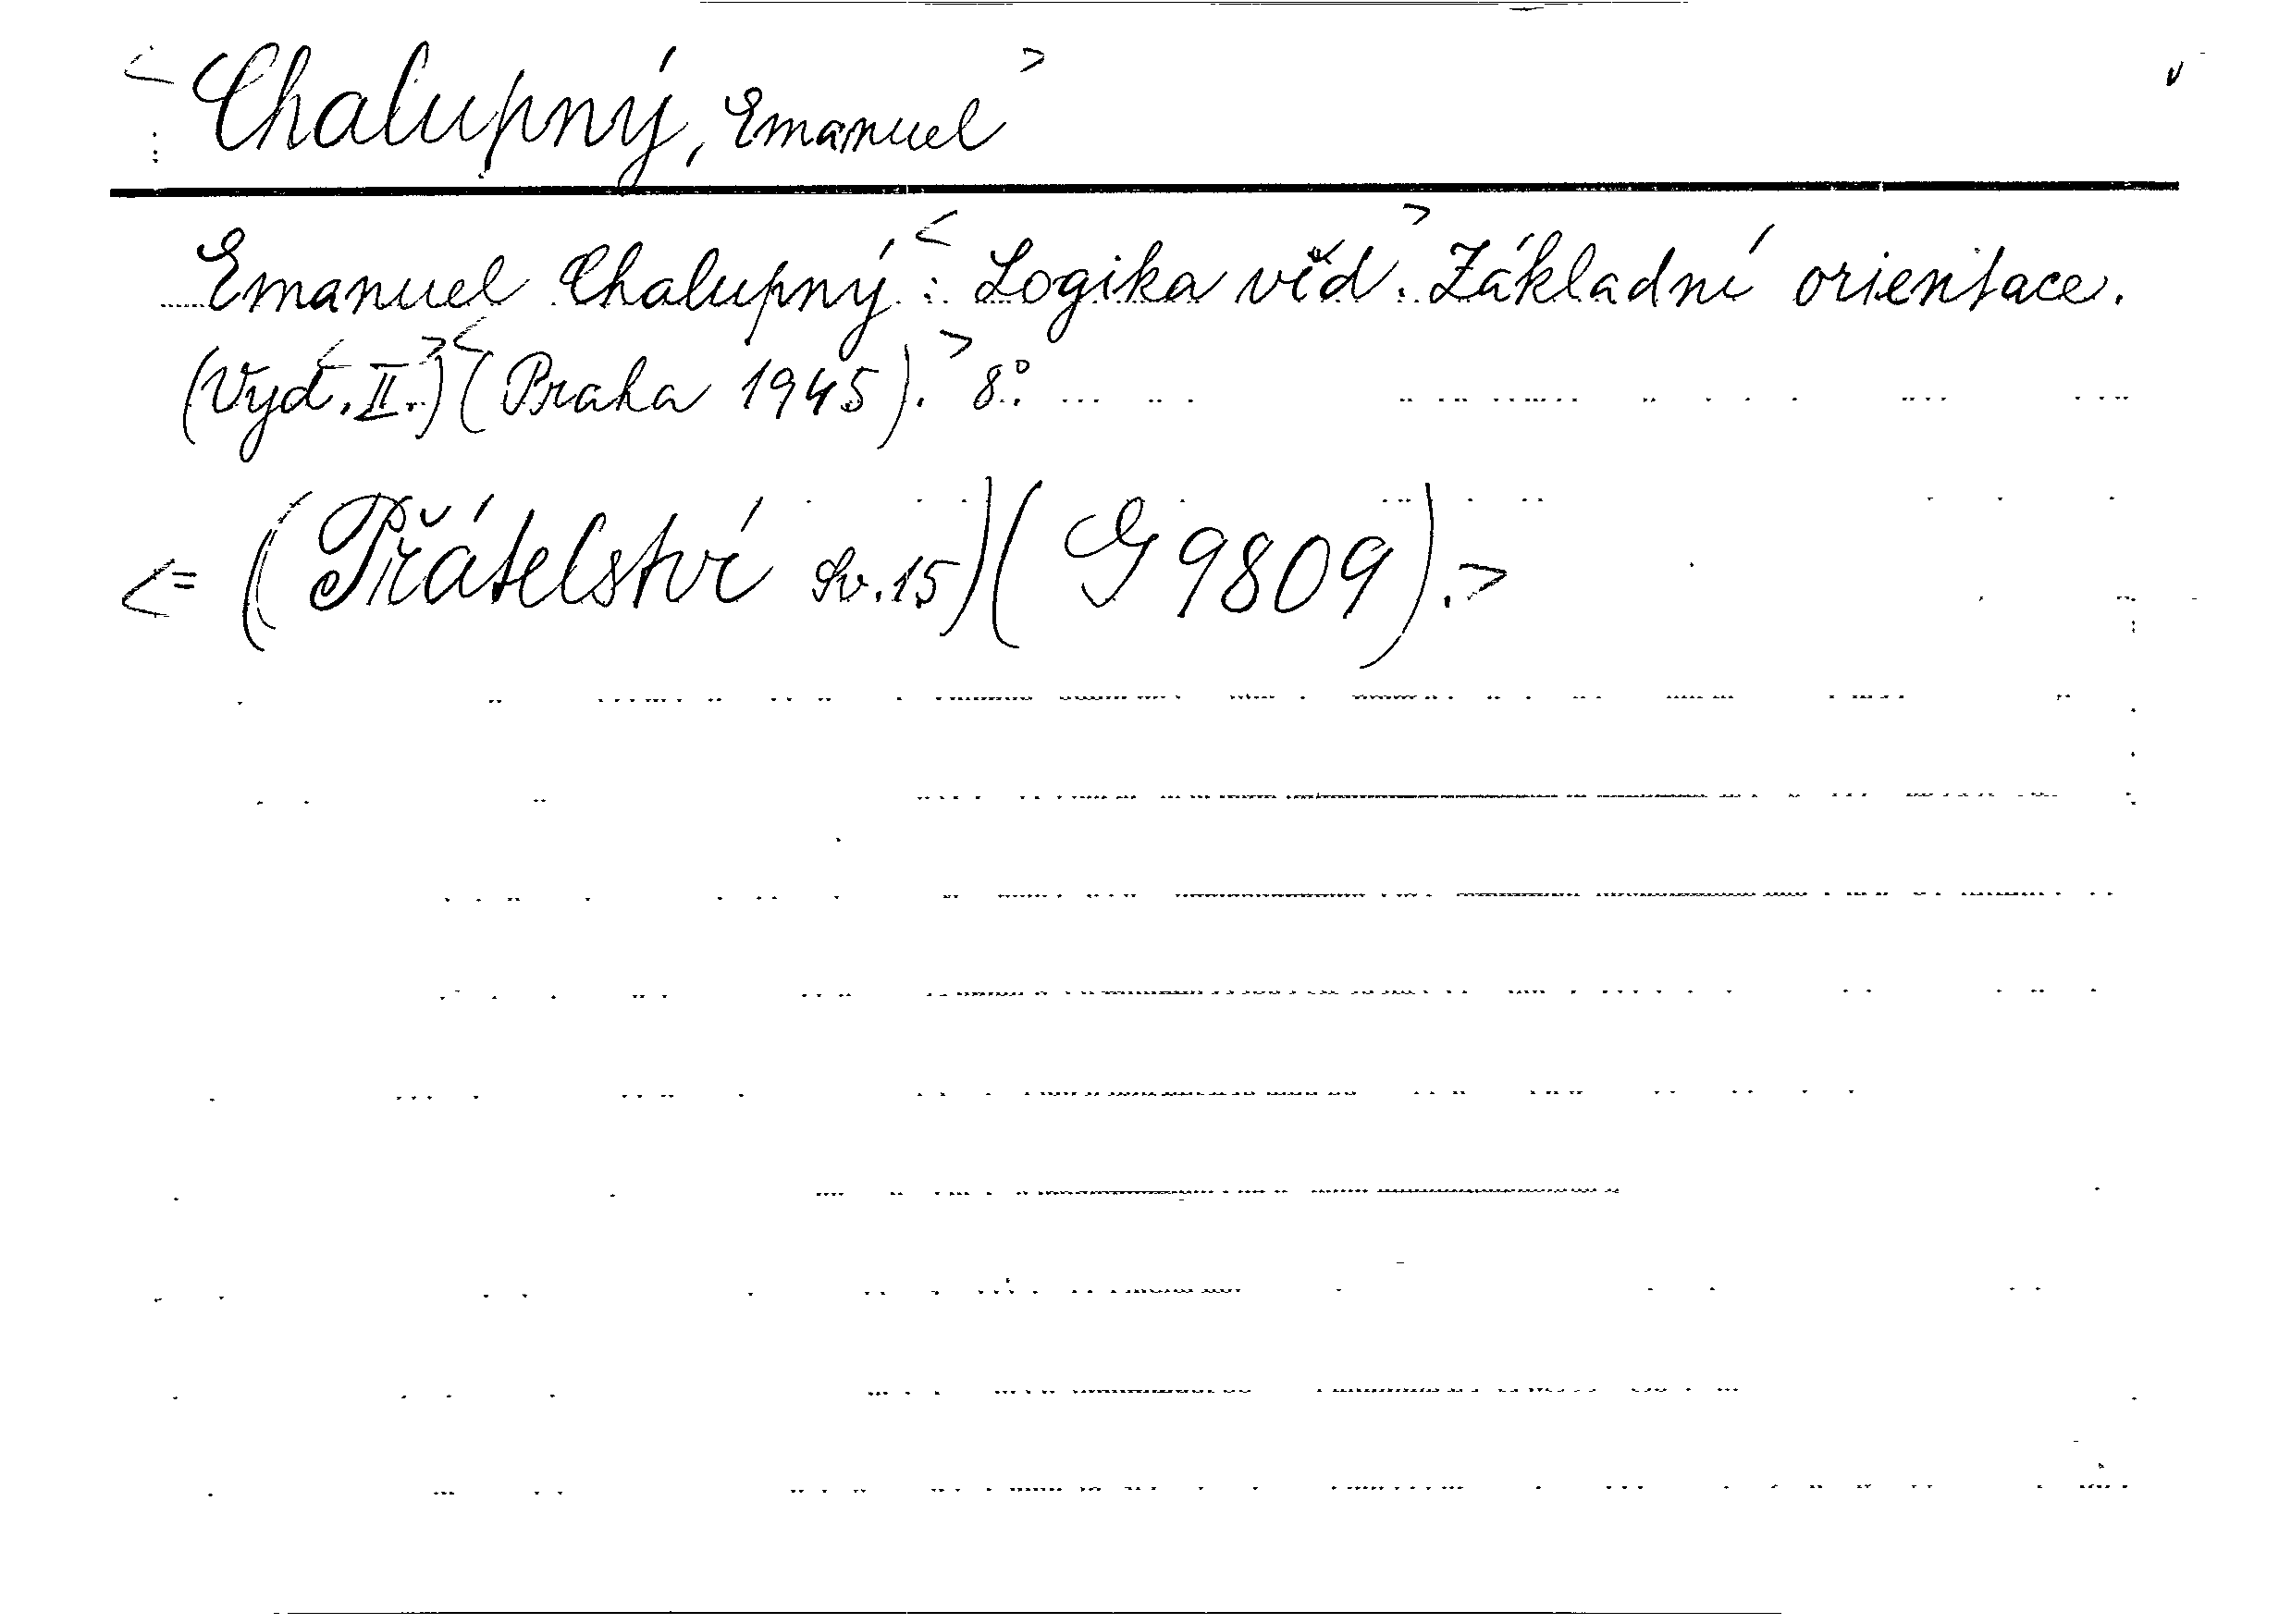 <Chalupný, Emanuel>
Emanuel Chalupný: <Logika věd.> Základní orientace.
(Vyd. <II.>) <(Praha 1945).> 8°.
<= (Přátelství sv. 15) (G 9809).>